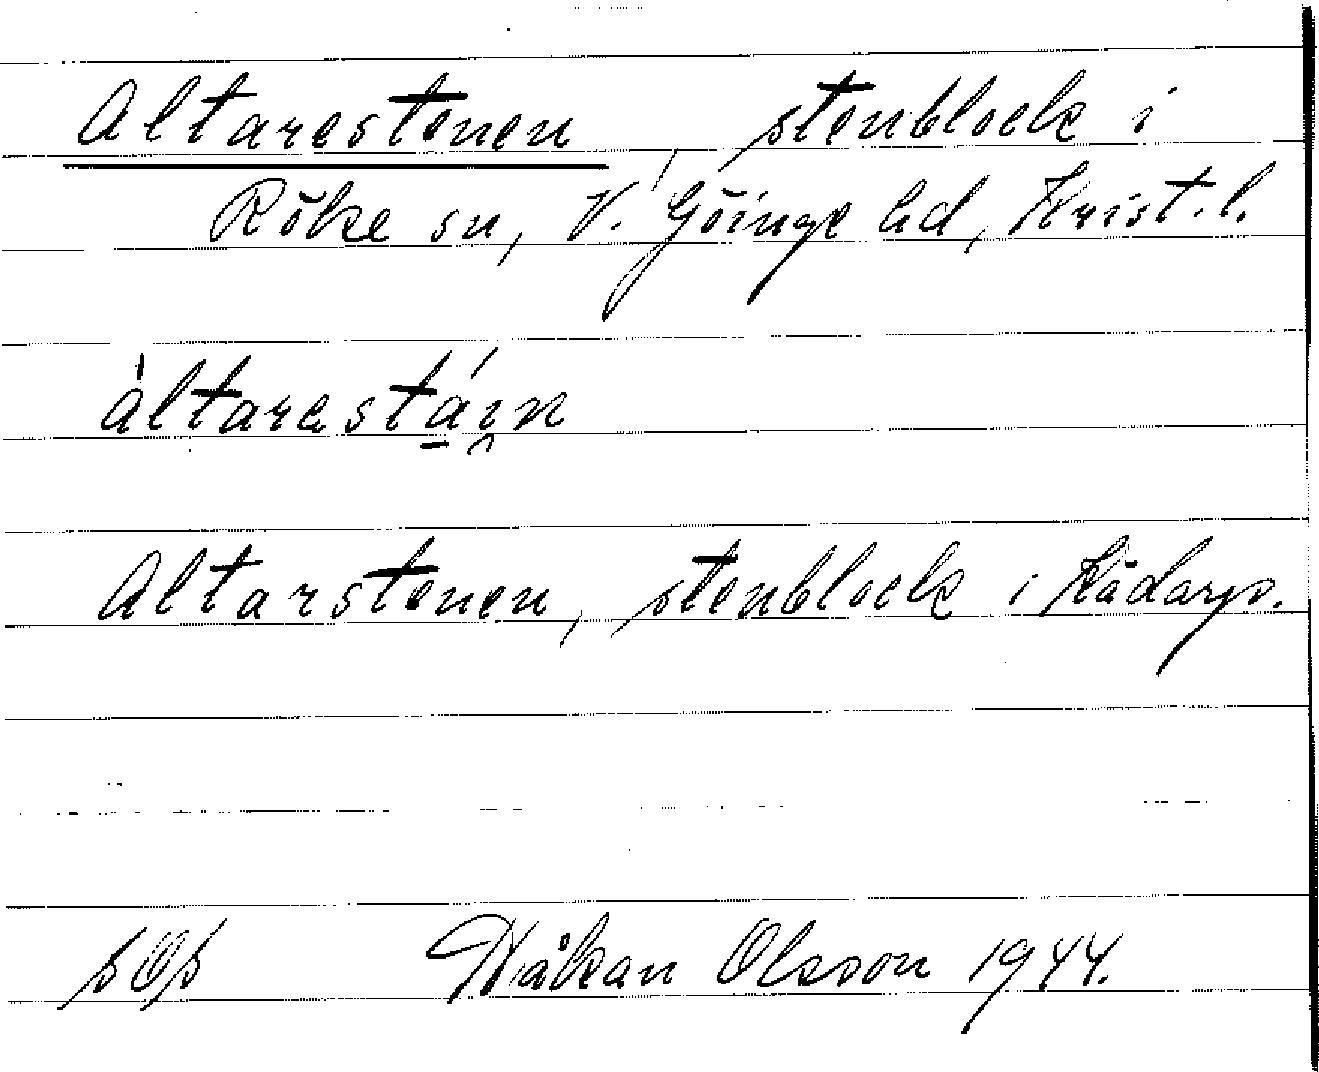 Altarestenen, stenblock i
Röke sn, V. Göinge hd, Krist. l.
Altarstenen, stenblock i Kådarp.
Håkan Olsson 1944.